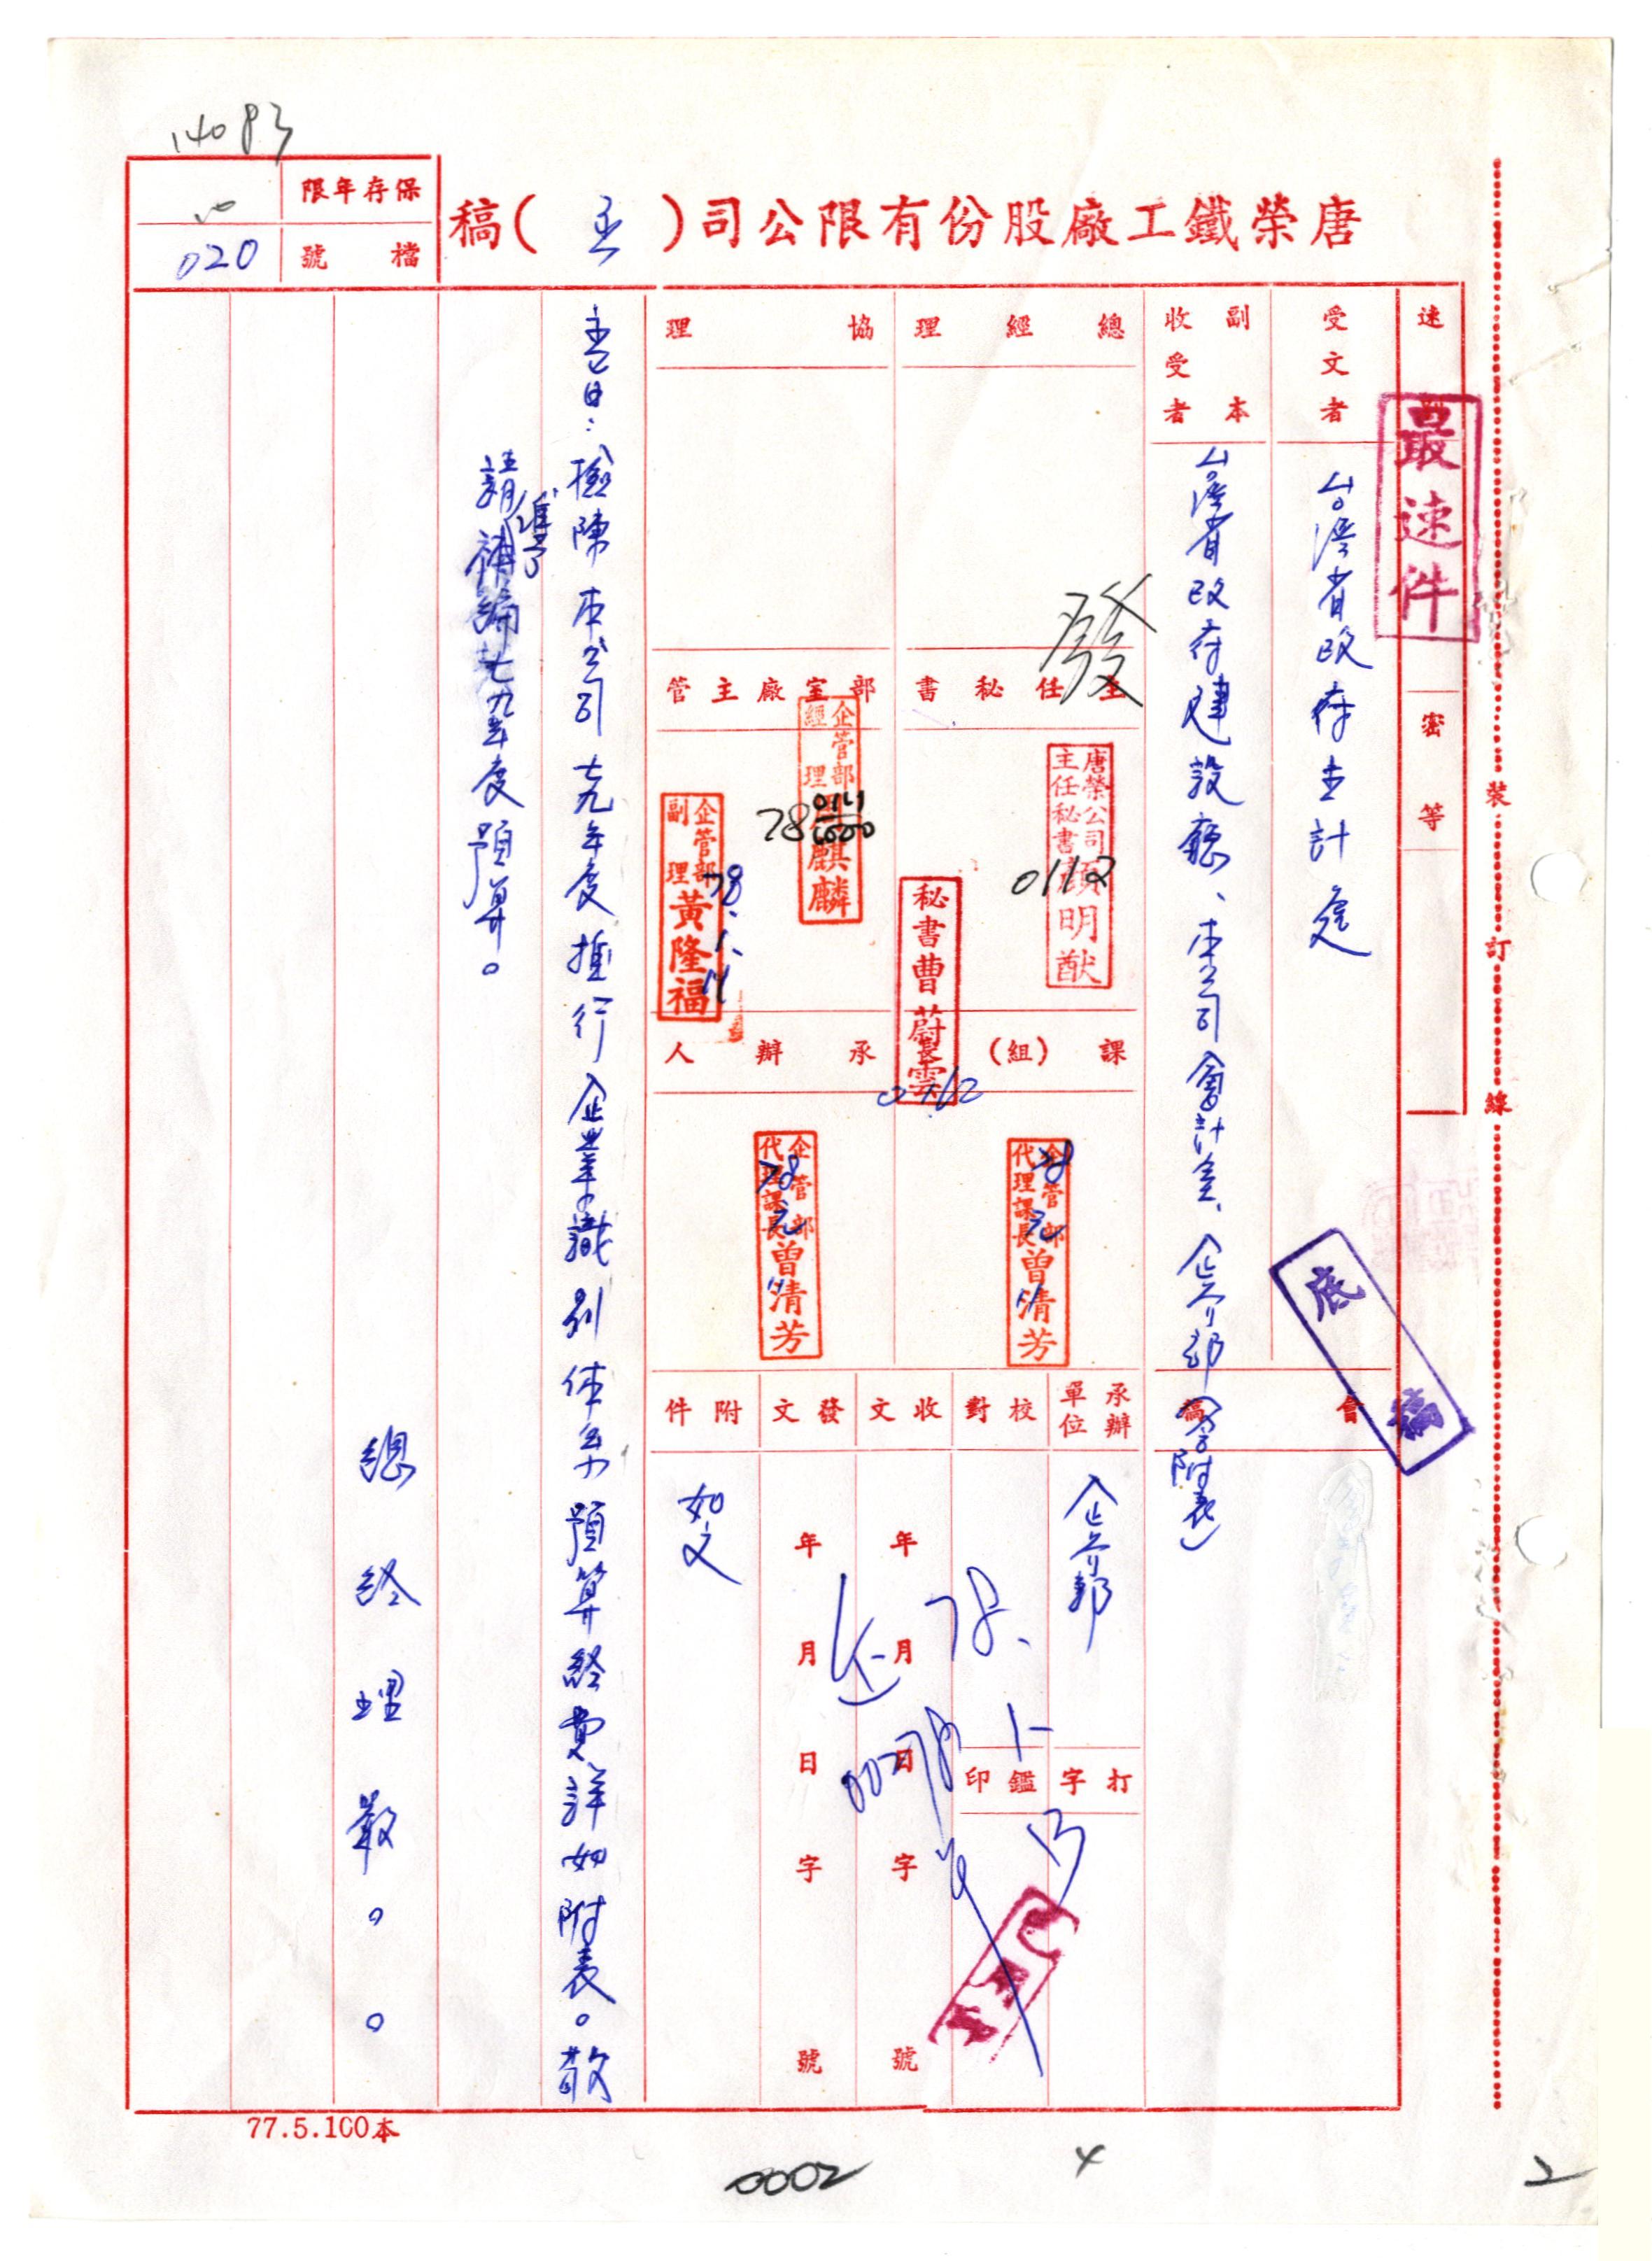 14083
保存年限
檔號
020
唐榮鐵工廠股份有限公司(函)稿
速別
最速件
密等
裝
訂
線
受文者
台灣省政府主計處
副本收受者
台灣省政府建設廳、本公司會計處、企劃部(含附表)
底稿
會稿
總經理
協理
發
主任秘書
部室廠主管
唐榮公司主任秘書顏明猷
0112
秘書曹蔚雲
企管部經理
麒麟
78
企管部副理黃隆福
78.1.11
課(組)長
承辦人
企管部代理課長曾清芳
企管部代理課長曾清芳
承辦單位
校對
收文
發文
附件
年月日字號
年月日字號
如文
78.
打字
鑑印
主旨:檢陳本公司七九年度推行企業識別体系預算經費詳如附表。敬
請准予補編七九年度預算。
總經理嚴○○
77.5.100本
0002
4
2